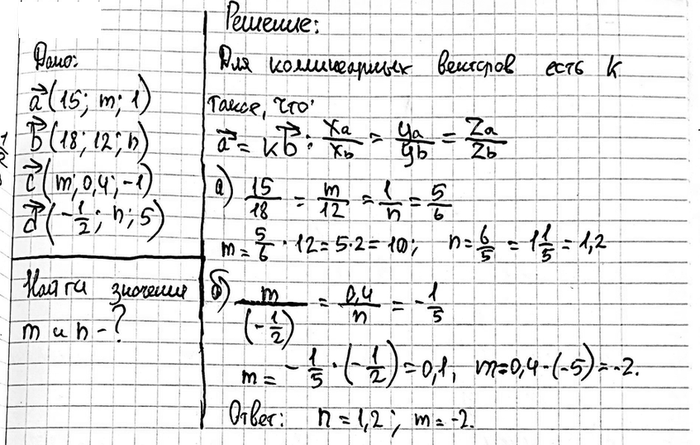 Дано:
a⃗(15; m; 1)
b⃗(18; 12; n)
c⃗(m; 0,4; -1)
d⃗(-1/2; n; 5)
Найти значения
m и n - ?
Решение:
Для коллинеарных векторов есть k
такое, что:
a⃗ = kb⃗: xa/xb = ya/yb = za/zb
а) 15/18 = m/12 = 1/n = 5/6
m = 5/6 · 12 = 5·2 = 10; n = 6/5 = 1 1/5 = 1,2
б) m/(-1/2) = 0,4/n = -1/5
m = -1/5 · (-1/2) = 0,1, m = 0,4 · (-5) = -2.
Ответ: n = 1,2; m = -2.